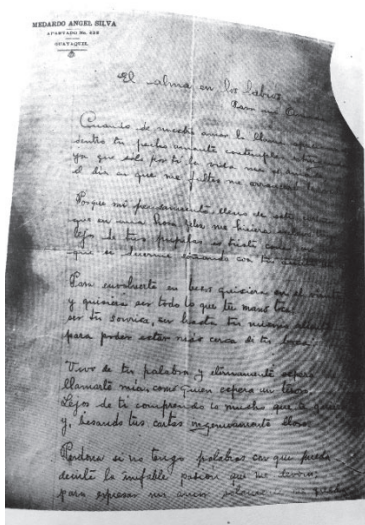 MEDARDO ANGEL SILVA
APARTADO No.
GUAYAQUIL
El alma en los labios
Para mi
Cuando de nuestro amor la llama apasionada
dentro tu pecho amante contemples
ya que sólo por ti la vida me es amada
el día en que me faltes me arrancaré la vida
Porque mi pensamiento, lleno de este cariño
que en una hora feliz me hiciera esclavo
lejos de tus pupilas es triste como un
que se duerme soñando con tu
Para envolverte en besos quisiera ser el viento
y quisiera ser todo lo que tu mano toca
ser tu sonrisa, ser hasta tu mismo aliento
para poder estar más cerca de tu boca
Vivo de tu palabra, y eternamente espero
llamarte mía, como quien espera un tesoro.
Lejos de ti comprendo lo mucho que te quiero
y, besando tus cartas ingenuamente lloro.
Perdona si no tengo palabras con que pueda
decirte la inefable pasión que me devora;
para expresar mi amor solamente me queda